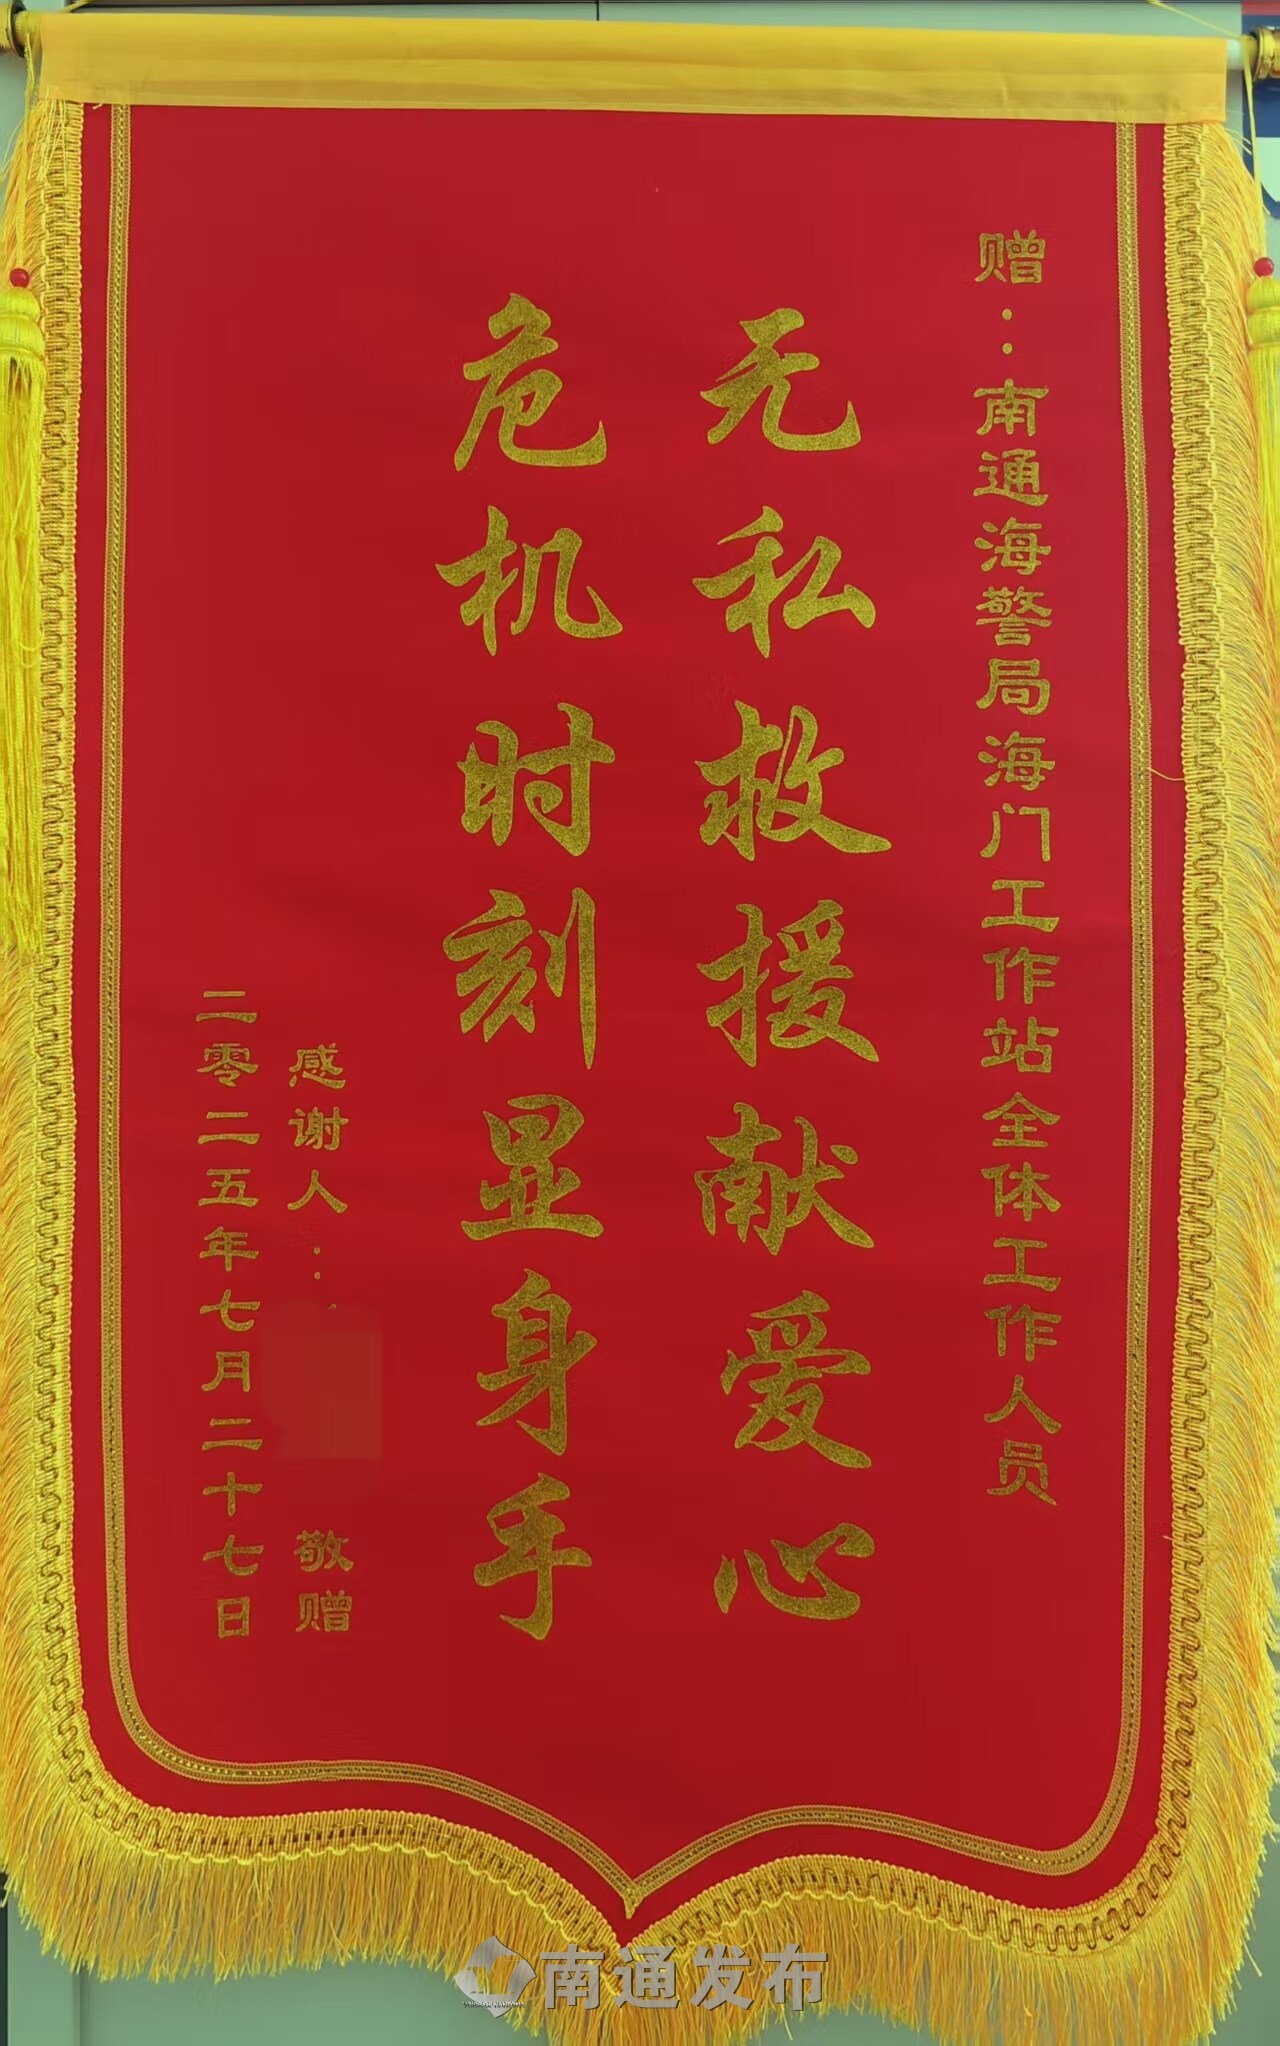 赠：南通海警局海门工作站全体工作人员
无私救援献爱心
危机时刻显身手
感谢人：
敬赠
二零二五年七月二十七日
南通发布